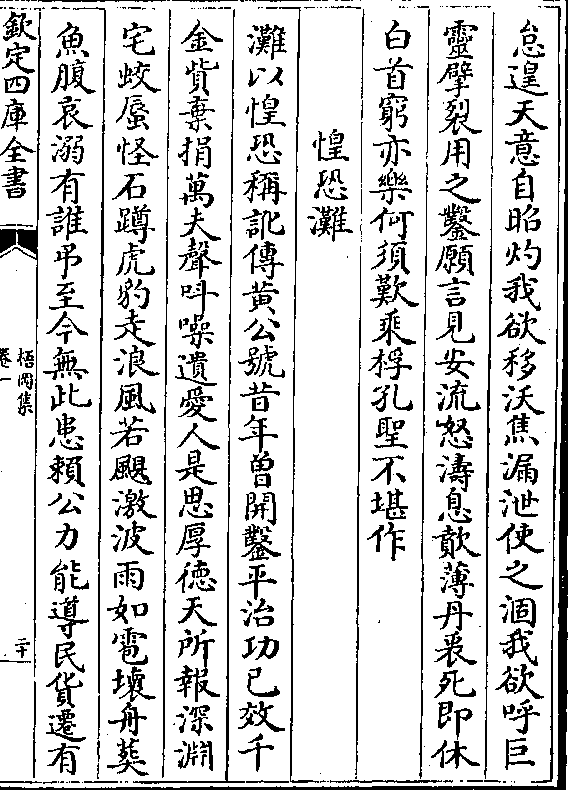 怠遑天意自昭灼我欲移沃焦漏泄使之涸我欲呼巨
靈擘裂用之鑿願言見安流怒濤息歕薄丹裘死即休
白首窮亦樂何須歎乘桴孔聖不堪作
惶恐灘
灘以惶恐稱訛傳黄公號昔年曾開鑿平治功已效千
金貲棄捐萬夫聲呌噪遺愛人是思厚德天所報深淵
宅蛟蜃怪石蹲虎豹走浪風若颶激波雨如雹壊舟葬
魚腹哀溺有誰弔至今無此患賴公力能導民貨遷有
欽定四庫全書
梧岡集
卷一
二十